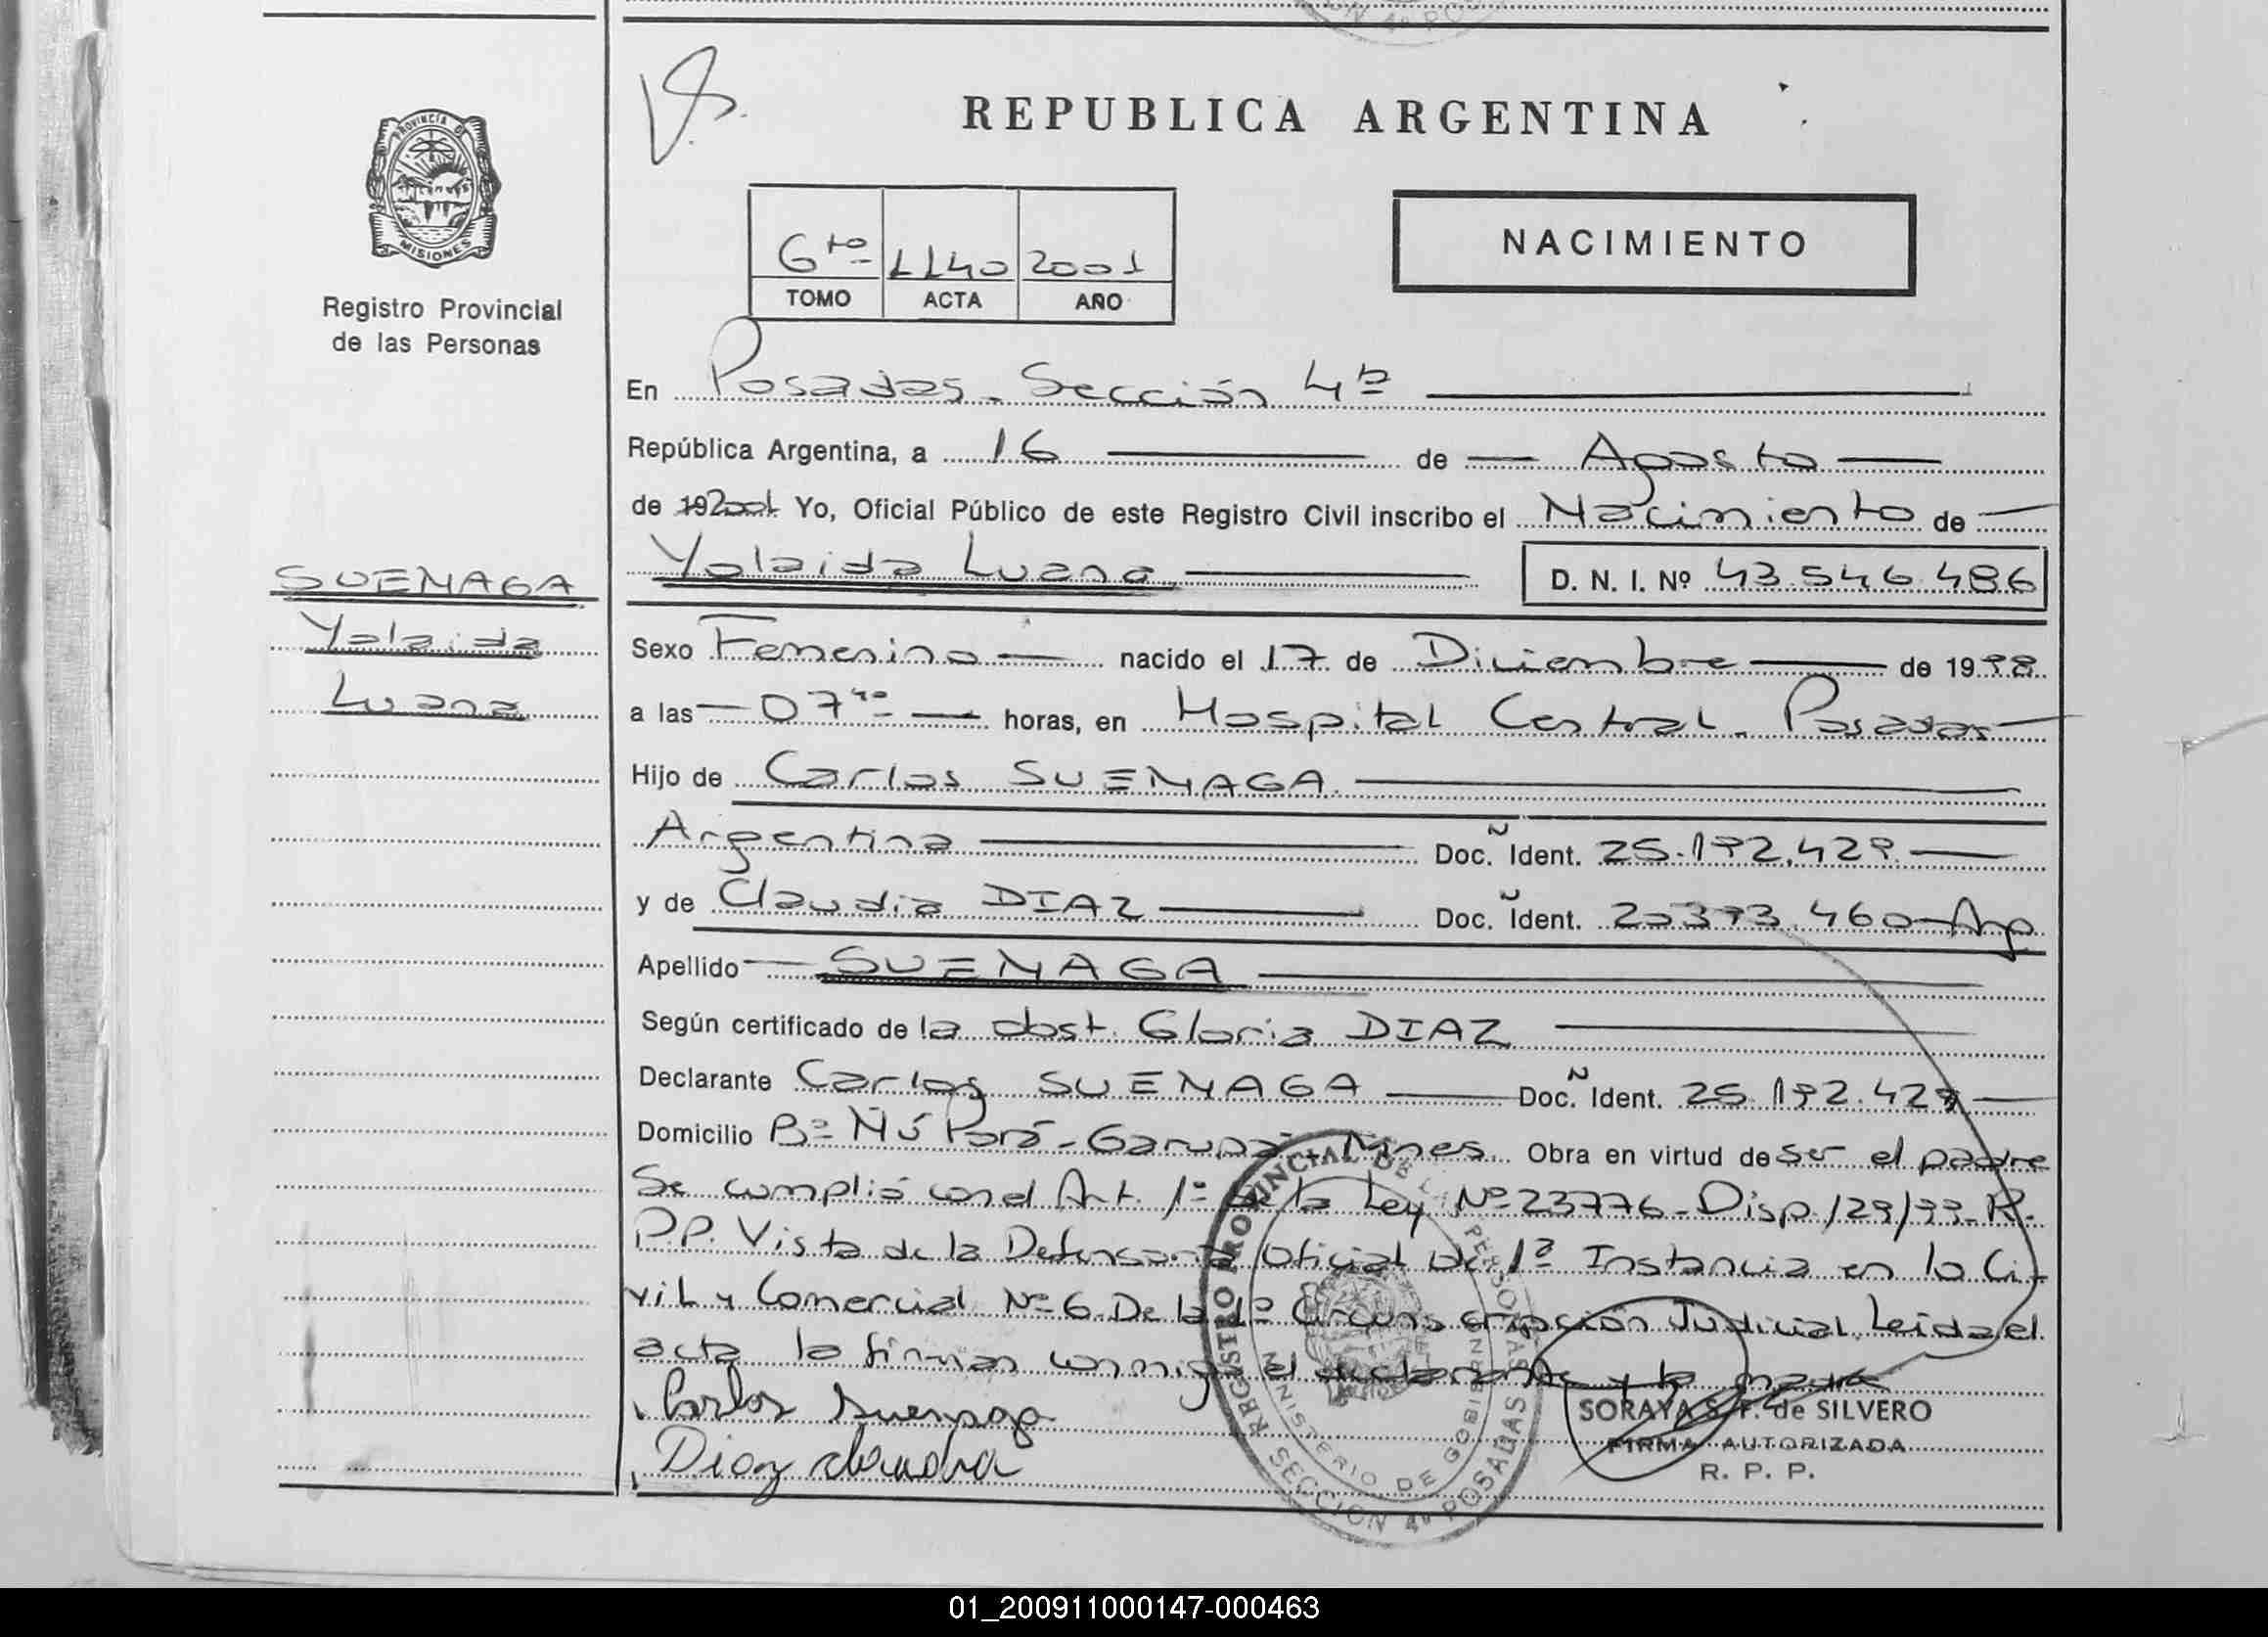 REPUBLICA ARGENTINA
PROVINCIA DE
MISIONES
Registro Provincial
de las Personas
NACIMIENTO
6to 1140 2001
TOMO ACTA AÑO
En Posadas - Sección 4ª
República Argentina, a 16 de Agosto
de 19 2001 Yo, Oficial Público de este Registro Civil inscribo el Nacimiento de
Yolaida Luana D. N. I. Nº 43.546.486
SUENAGA
Yolaida
Luana
Sexo Femenino nacido el 17 de Diciembre de 1998
a las 07 40 horas, en Hospital Central - Posadas
Hijo de Carlos SUENAGA
Argentina Doc. Ident. 25.192.429
y de Claudia DIAZ Doc. Ident. 20373.460 Arg
Apellido SUENAGA
Según certificado de la obst. Gloria DIAZ
Declarante Carlos SUENAGA Doc. Ident. 25.192.429
Domicilio Bº Ñú Porá - Garupá - Mnes. Obra en virtud de ser el padre
Se cumplió con el Art. 1º de la Ley Nº 23776 - Disp /29/99 - R.
P.P. Vista de la Defensoría Oficial de 1ª Instancia en lo Ci-
vil y Comercial Nº 6 De la 1º Circunscripción Judicial. Leida el
acta la firman conmigo el declarante y la madre
Carlos Suenaga
Diaz claudia
SORAYA S. F. de SILVERO
FIRMA AUTORIZADA
R. P. P.
REGISTRO PROVINCIAL DE LAS PERSONAS
MINISTERIO DE GOBIERNO
SECCION 4º POSADAS
01_200911000147-000463